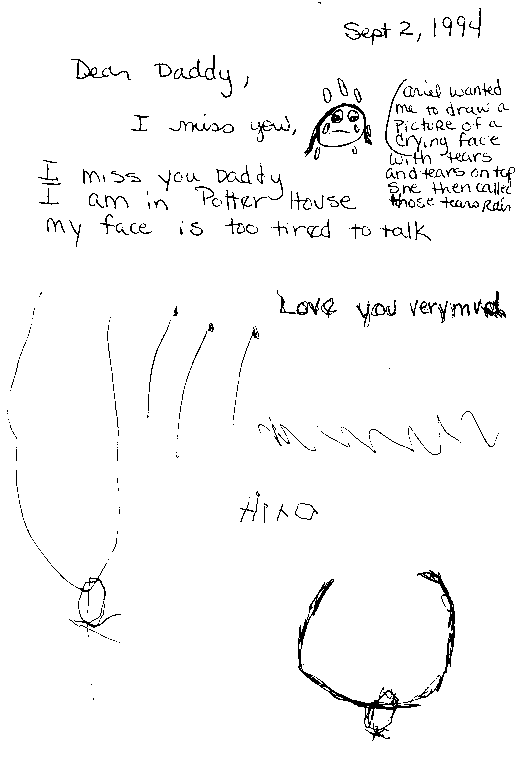 Sept 2, 1994
Dear Daddy,
I miss you,
Ariel wanted
me to draw a
Picture of a
crying face
with tears
and tears on top
She then called
those tears Rain
I miss you Daddy
I am in Potter House
my face is too tired to talk
Love you very much